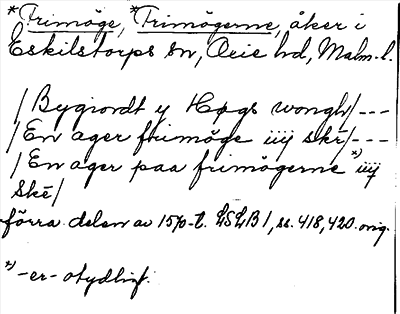 *Frimöge, *Frimögerne, åker i
Eskilstorps sn, Oxie hd, Malm. l.
/Bygiordt y Høgs wongh/---
/En ager frimöge iiij skē/---
/En ager paa frimögerne *) iiij
skē/
förra delen av 1570-t. LSLB 1, ss. 418, 420. orig.
*) -er- otydligt.